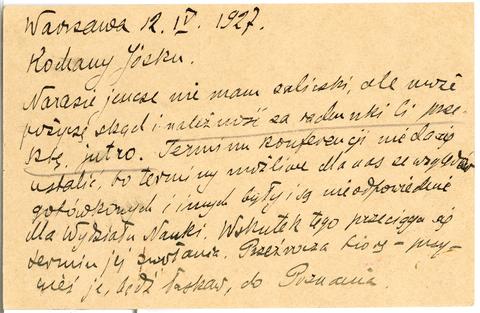 Warszawa 12. IV. 1927.
Kochany Józku.
Narazie jeszcze nie mam zaliczki, ale może
pożyczę skądś i należność za rachunki Ci prze-
ślę jutro. Terminu konferencji nie dało się
ustalić, bo terminy możliwe dla nas ze względów
gotówkowych i innych były i są nieodpowiednie
dla Wydziału Nauki. Wskutek tego przeciąga się
termin jej zwołania. Przeźrocza biorę – przy-
wieź je, bądź łaskaw, do Poznania.